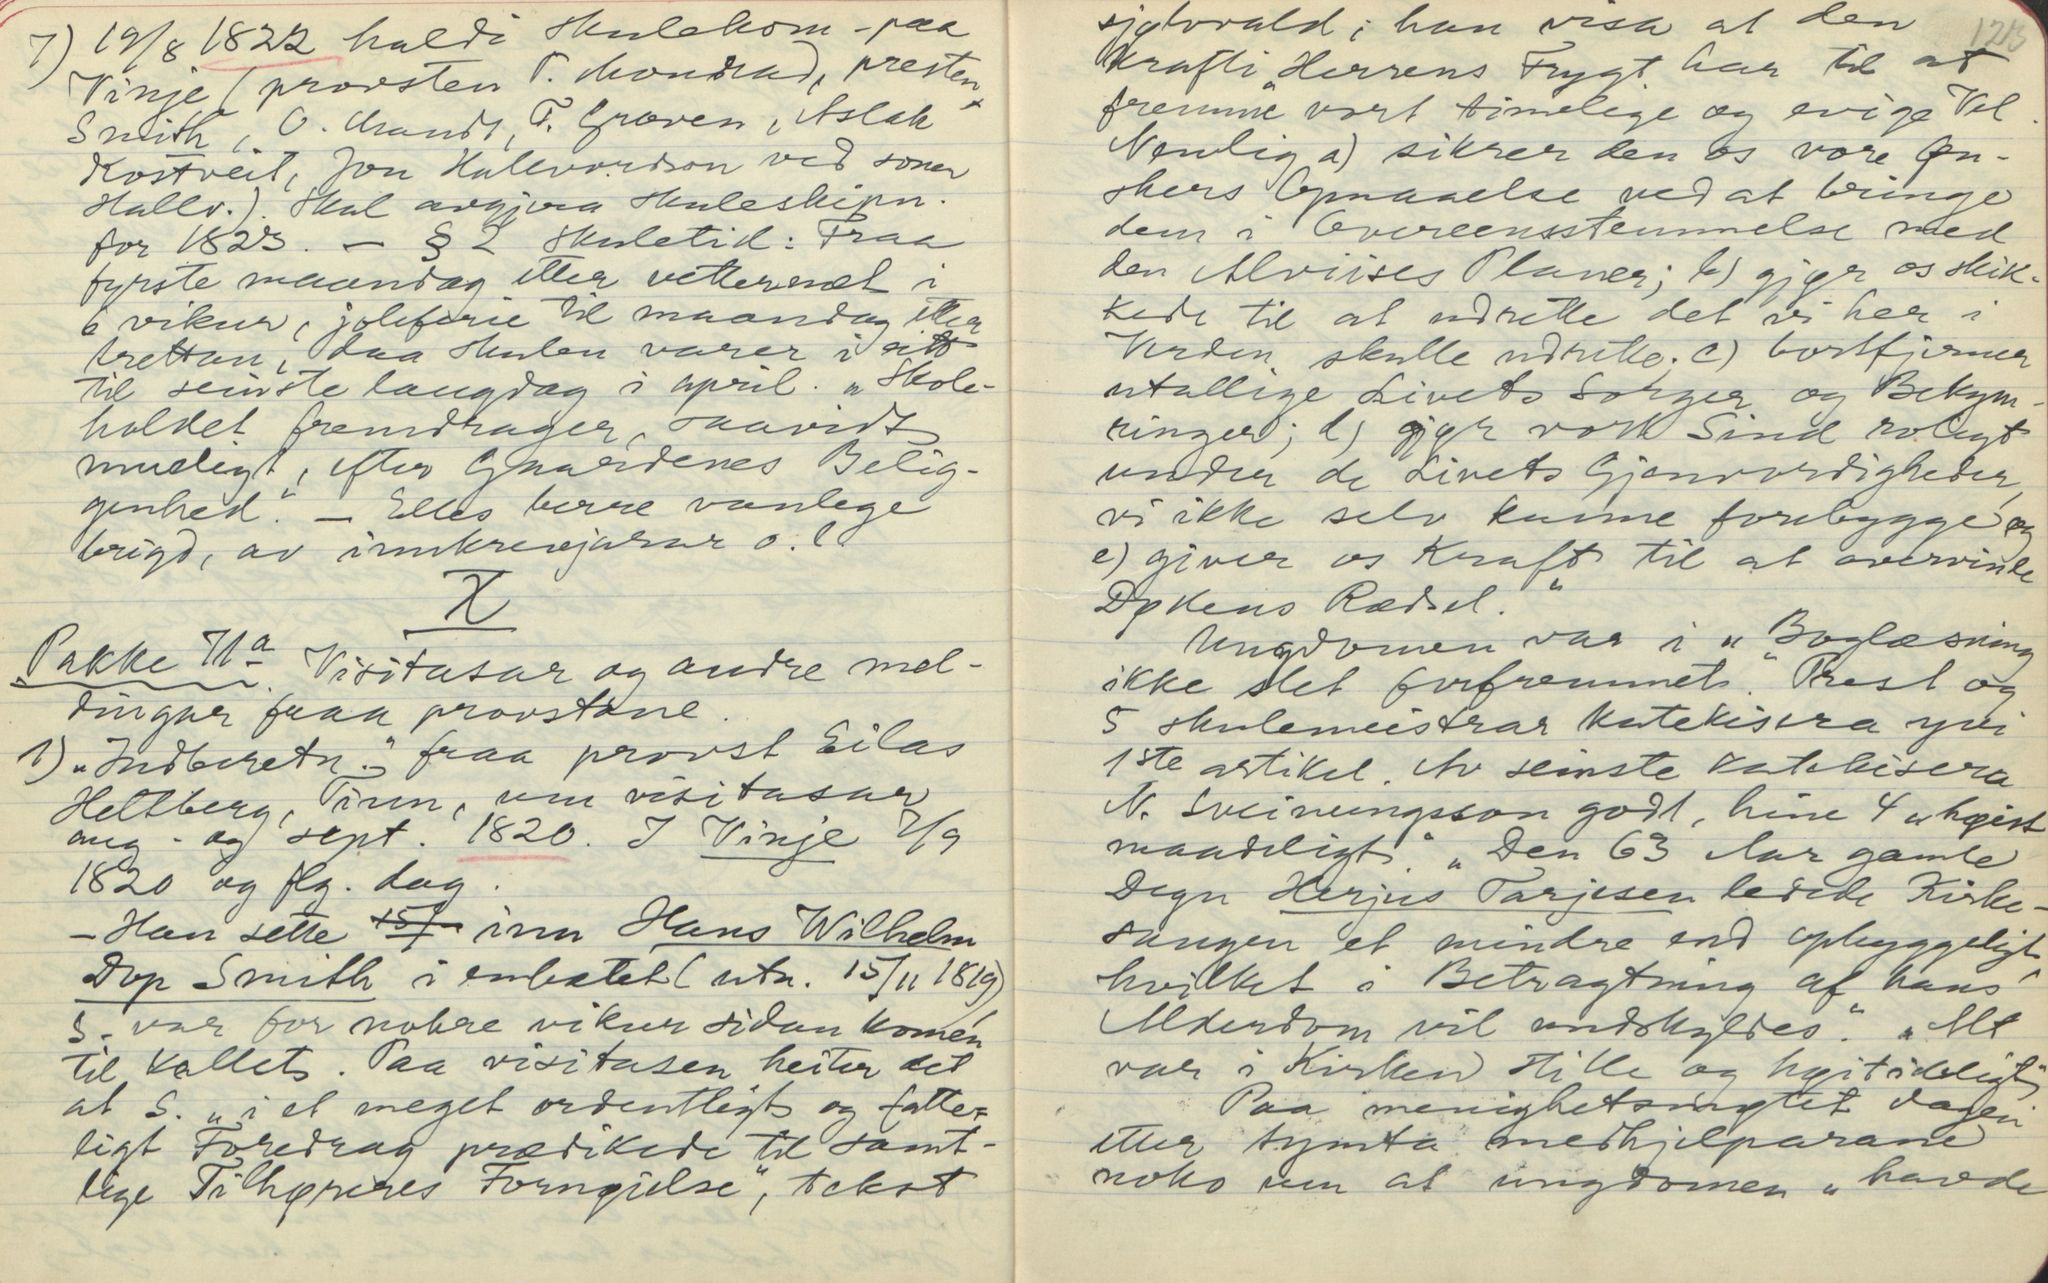 7) 19/8 1822 haldi skulekom. paa
Vinje (provsten T. Mondrad, presten
Smith, O. Mandt, T. Groven, Aslak
Kostveit, Jon Hallvordson ved sonen
Hallv.). Skal avgjera skuleskipn.
for 1823. — § 2 skuletid: Fraa
fyrste maandag etter vetternæt i
6 vikur, joleferie til maandag etter
trettan, daa skulen varer i eitt
til seinste laugdag i april. „Skole-
holdet fremdrager, saavidt
mueligt, efter Gaardenes Belig-
genhed.“ — Elles berre vanlege
brigd, av innkrevjarar o.l.
X
Pakke 71a. Visitasar og andre mel-
dingar fraa provstane.
1) „Indberetn.“ fraa provst Eilas
Heltberg, Tinn, um visitasar
aug.- og sept. 1820. I Vinje 7/9
1820 og flg. dag.
– Han sette inn Hans Wilhelm
Dop Smith i embætet (utn. 15/11 1819)
S. var for nokre vikur sidan komen
til kallet. Paa visitasen heiter det
at S. „i et meget ordentligt og fatte-
ligt Foredrag prædikede til samt-
lige Tilhøreres Fornøielse“, tekst
128
sjølvvald; han visa at den
Krafti „Herrens Frygt har til at
fremme vort timelige og evige Vel.
Nemlig a) sikrer den os vore Øn-
skers Opnaaelse ved at bringe
dem i Overeensstemmelse med
den Alviises Planer; b) gjør os skik-
kede til at udrette det vi her i
Verden skulle udrette; c) bortfjerner
utallige Livets Sorger og Bekym-
ringer; d) gjør vort Sind roligt
under de Livets Gjenvordigheder,
vi ikke selv kunne forebygge og
e) giver os Kraft til at overvinde
Døkens Rædsel.“
Ungdomen var i „Boglæsning
ikke slet forfremmet“. Prest og
5 skulemeistrar katekisera yvi
1ste artikel. Av seinste katekisera
N. Sveinungsson godt, hine 4 „høist
maadeligt“. „Den 63 Aar gamle
Degn Herjus Tarjesen ledede Kirke-
sangen et mindre end opbyggeligt,
hvilket i Betragtning af hans
Alderdom vil undskyldes“. „Alt
var i Kirken stille og høitideligt“
Paa menighetsmøtet dagen
etter symta medhjelparane
noko um at ungdomen „havde